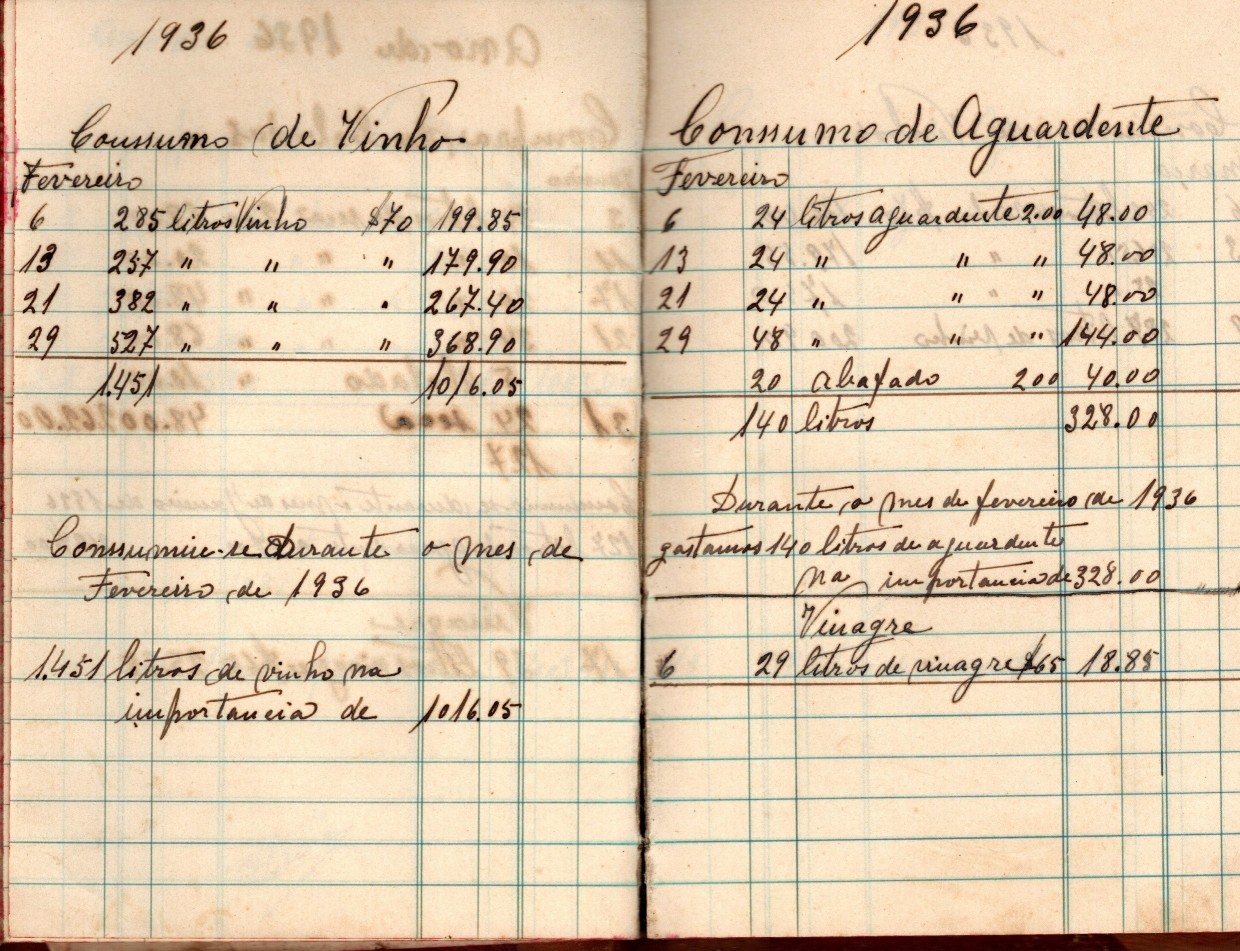 1936
Conssumo de Vinho
Fevereiro
6 285 litros Vinho $70 199.85
13 257 " " " 179.90
21 382 " " " 267.40
29 527 " " " 368.90
1.451 1016.05
Conssumiu-se durante o mes de
Fevereiro de 1936
1.451 litros de vinho na
importancia de 1016.05
1936
Conssumo de Aguardente
Fevereiro
6 24 litros aguardente 2.00 48.00
13 24 " " " 48.00
21 24 " " " 48.00
29 48 " " " 144.00
20 abafado 200 40.00
140 litros 328.00
Durante o mes de fevereiro de 1936
gastamos 140 litros de aguardente
na importancia de 328.00
Vinagre
6 29 litros de vinagre $65 18.85